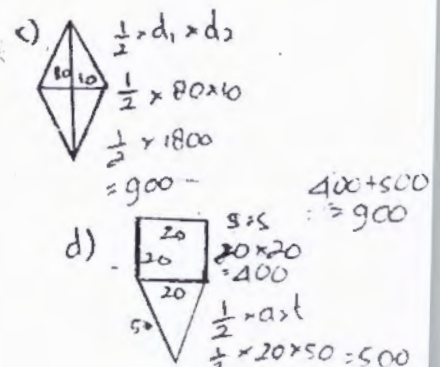 c)
80 10
1/2 × d₁ × d₂
1/2 × 80 × 10
1/2 × 1800
= 900
400+500
= 900
d)
20
20
20
50
s×s
20×20
=400
1/2 × a × t
1/2 × 20 × 50 = 500